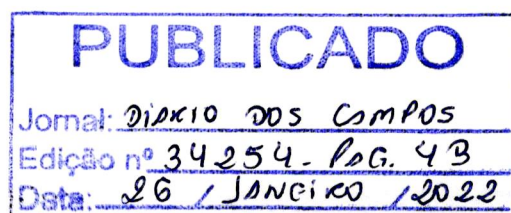 PUBLICADO
Jornal: DIÁRIO DOS CAMPOS
Edição nº 34254 - PAG. 4B
Data: 26 / JANEIRO / 2022